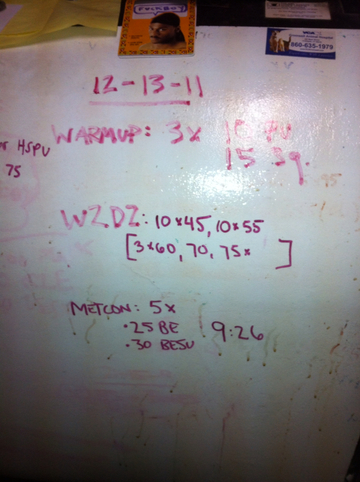 12-13-11
HSPU
75
WARMUP: 3x 15 PU
15 Sq.
WZDZ: 10x45, 10x55
[3x60, 70, 75x ]
METCON: 5x
• 25 BE
• 30 BESU
9:26
860-635-1979